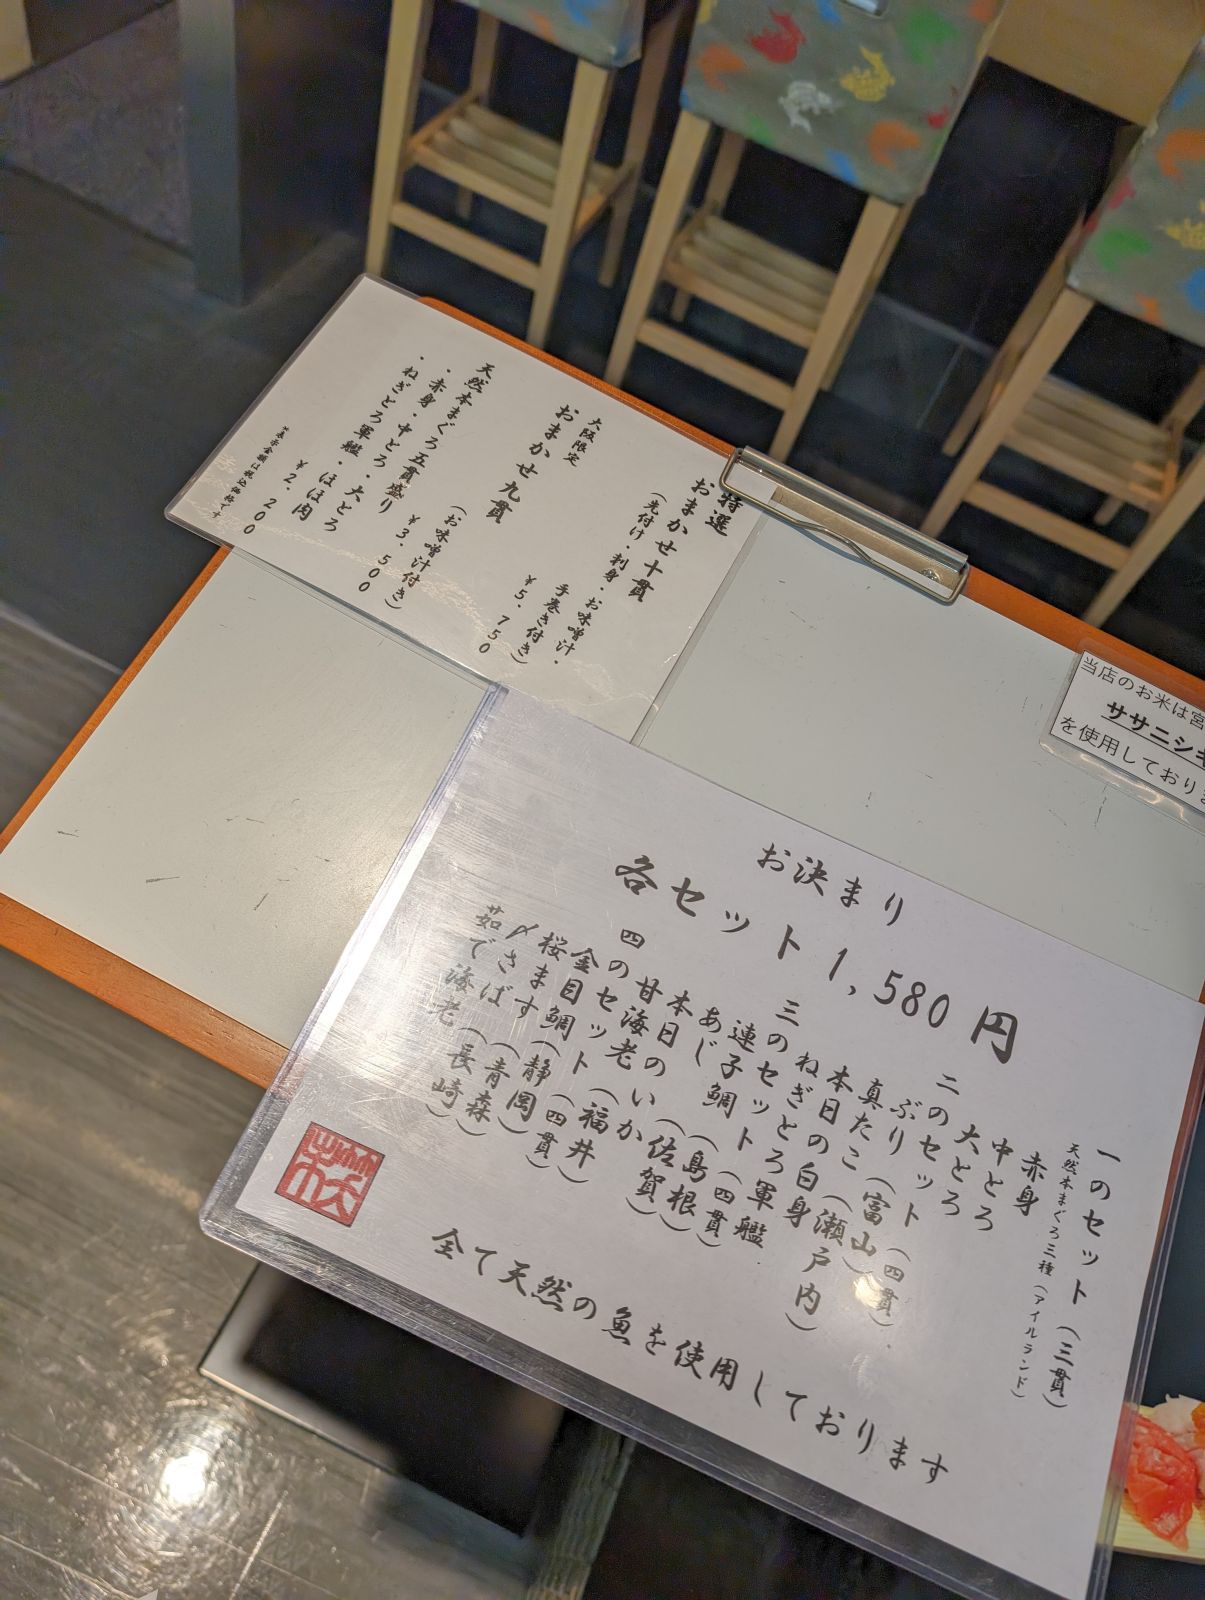 特選
おまかせ十貫
(先付け・刺身・お味噌汁・
手巻き付き)
¥5,750
大阪限定
おまかせ九貫
(お味噌汁付き)
¥3,500
天然本まぐろ五貫盛り
・赤身・中とろ・大とろ
・ねぎとろ軍艦・ほほ肉
¥2,200
※表示金額は税込価格です
当店のお米は宮
ササニシキ
を使用しておりま
お決まり
各セット1,580円
一のセット(三貫)
天然本まぐろ三種(アイルランド)
赤身
中とろ
大とろ
二のセット(四貫)
ぶり(富山)
真たこ(瀬戸内)
本日の白身
ねぎとろ軍艦
三のセット(四貫)
連子鯛(島根)
あじ(佐賀)
本日のいか
甘海老(福井)
四のセット(四貫)
金目鯛(静岡)
桜ます(青森)
〆さば
茹で海老(長崎)
全て天然の魚を使用しております